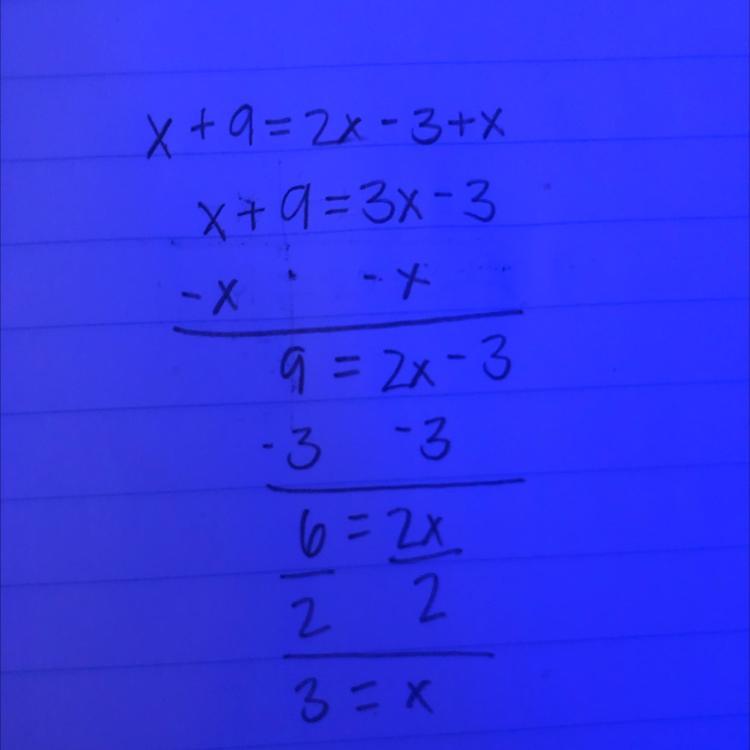 x + 9 = 2x - 3 + x
x + 9 = 3x - 3
-x - x
9 = 2x - 3
-3 -3
6 = 2x
2 2
3 = x